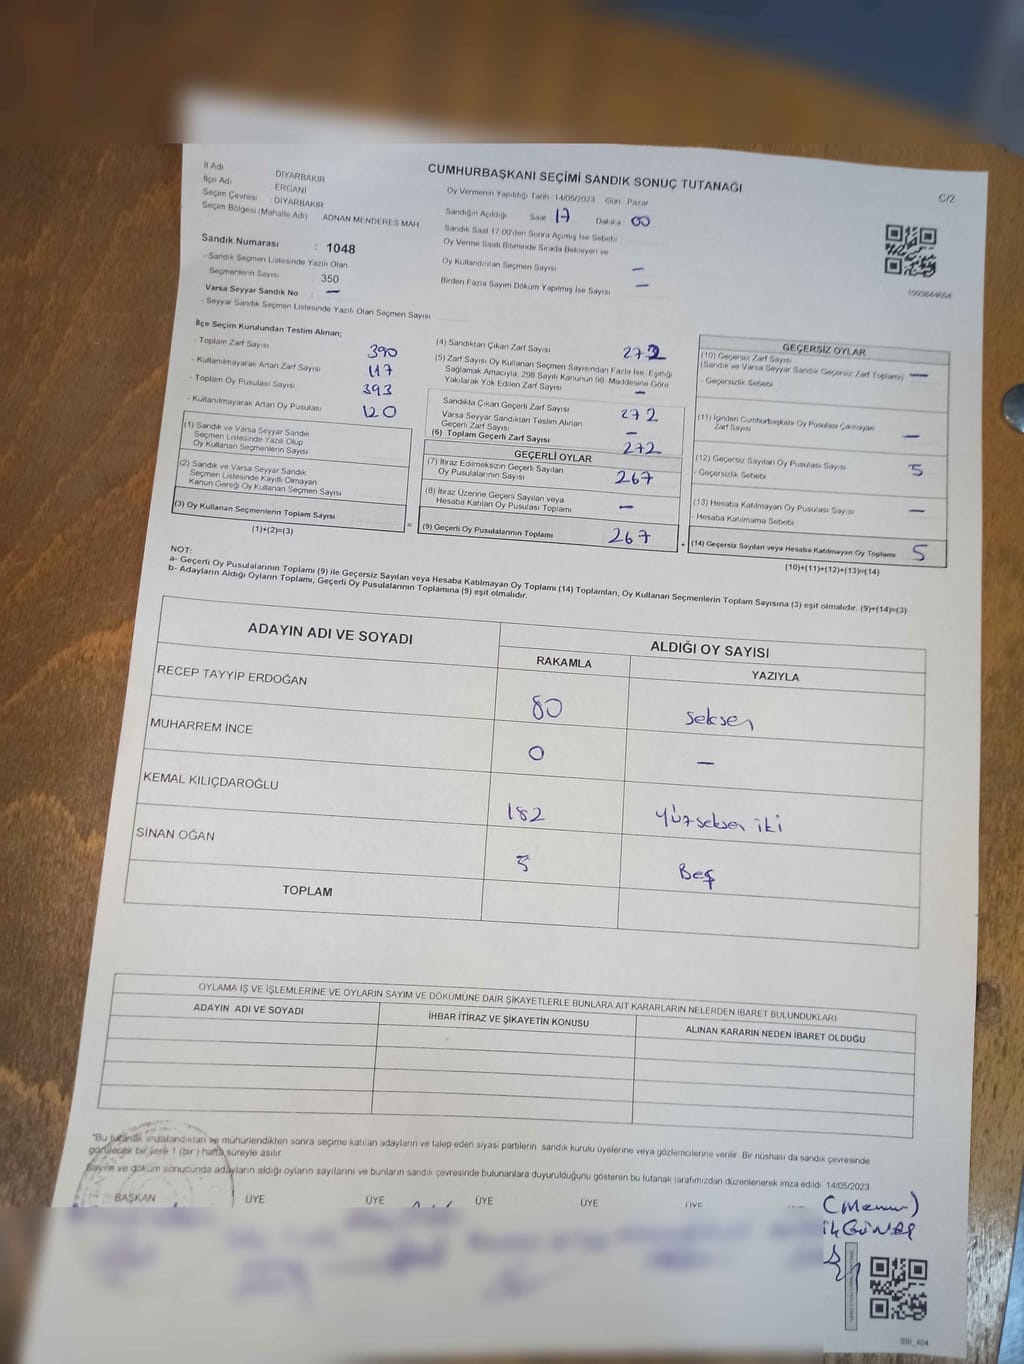 CUMHURBAŞKANI SEÇİMİ SANDIK SONUÇ TUTANAĞI
C/2
İl Adı DİYARBAKIR
İlçe Adı ERGANİ
Seçim Çevresi : DİYARBAKIR
Seçim Bölgesi (Mahalle Adı) ADNAN MENDERES MAH
Sandık Numarası : 1048
- Sandık Seçmen Listesinde Yazılı Olan
Seçmenlerin Sayısı 350
Varsa Seyyar Sandık No : —
- Seyyar Sandık Seçmen Listesinde Yazılı Olan Seçmen Sayısı
Oy Vermenin Yapıldığı Tarih 14/05/2023 Gün Pazar
Sandığın Açıldığı Saat 17 Dakika 00
Sandık Saat 17.00'den Sonra Açımış İse Sebebi
Oy Verme Saati Bitiminde Sırada Bekleyen ve
Oy Kullandırılan Seçmen Sayısı —
Birden Fazla Sayım Döküm Yapılmış İse Sayısı —
İlçe Seçim Kurulundan Teslim Alınan;
- Toplam Zarf Sayısı 390
- Kullanılmayarak Artan Zarf Sayısı 117
- Toplam Oy Pusulası Sayısı 393
- Kullanılmayarak Artan Oy Pusulası 120
(1) Sandık ve Varsa Seyyar Sandık
Seçmen Listesinde Yazılı Olup
Oy Kullanan Seçmenlerin Sayısı
(2) Sandık ve Varsa Seyyar Sandık
Seçmen Listesinde Kayıtlı Olmayan
Kanun Gereği Oy Kullanan Seçmen Sayısı
(3) Oy Kullanan Seçmenlerin Toplam Sayısı
(1)+(2)=(3)
=
(4) Sandıktan Çıkan Zarf Sayısı 272
(5) Zarf Sayısı Oy Kullanan Seçmen Sayısından Fazla İse, Eşitliği
Sağlamak Amacıyla, 298 Sayılı Kanunun 98. Maddesine Göre
Yakılarak Yok Edilen Zarf Sayısı —
Sandıkta Çıkan Geçerli Zarf Sayısı 272
Varsa Seyyar Sandıktan Teslim Alınan
Geçerli Zarf Sayısı —
(6) Toplam Geçerli Zarf Sayısı 272
GEÇERLİ OYLAR
(7) İtiraz Edilmeksizin Geçerli Sayılan
Oy Pusulalarının Sayısı 267
(8) İtiraz Üzerine Geçerli Sayılan veya
Hesaba Katılan Oy Pusulası Toplamı —
(9) Geçerli Oy Pusulalarının Toplamı 267
+
GEÇERSİZ OYLAR
(10) Geçersiz Zarf Sayısı
(Sandık ve Varsa Seyyar Sandık Geçersiz Zarf Toplamı) —
- Geçersizlik Sebebi
(11) İçinden Cumhurbaşkanı Oy Pusulası Çıkmayan
Zarf Sayısı —
(12) Geçersiz Sayılan Oy Pusulası Sayısı 5
- Geçersizlik Sebebi
(13) Hesaba Katılmayan Oy Pusulası Sayısı —
- Hesaba Katılmama Sebebi
(14) Geçersiz Sayılan veya Hesaba Katılmayan Oy Toplamı 5
(10)+(11)+(12)+(13)=(14)
NOT:
a- Geçerli Oy Pusulalarının Toplamı (9) ile Geçersiz Sayılan veya Hesaba Katılmayan Oy Toplamı (14) Toplamları, Oy Kullanan Seçmenlerin Toplam Sayısına (3) eşit olmalıdır. (9)+(14)=(3)
b- Adayların Aldığı Oyların Toplamı, Geçerli Oy Pusulalarının Toplamına (9) eşit olmalıdır.
ADAYIN ADI VE SOYADI ALDIĞI OY SAYISI
RAKAMLA YAZIYLA
RECEP TAYYİP ERDOĞAN 80 seksen
MUHARREM İNCE 0 —
KEMAL KILIÇDAROĞLU 182 Yüzseksen iki
SİNAN OĞAN 5 Beş
TOPLAM
OYLAMA İŞ VE İŞLEMLERİNE VE OYLARIN SAYIM VE DÖKÜMÜNE DAİR ŞİKAYETLERLE BUNLARA AİT KARARLARIN NELERDEN İBARET BULUNDUKLARI
ADAYIN ADI VE SOYADI İHBAR İTİRAZ VE ŞİKAYETİN KONUSU ALINAN KARARIN NEDEN İBARET OLDUĞU
"Bu tutanak imzalandıktan ve mühürlendikten sonra seçime katılan adayların ve talep eden siyasi partilerin sandık kurulu üyelerine veya gözlemcilerine verilir. Bir nüshası da sandık çevresinde
görülecek bir yere 1 (bir ) hafta süreyle asılır.
Sayım ve döküm sonucunda adayların aldığı oyların sayılarını ve bunların sandık çevresinde bulunanlara duyurulduğunu gösteren bu tutanak tarafımızdan düzenlenerek imza edildi. 14/05/2023
BAŞKAN ÜYE ÜYE ÜYE ÜYE ÜYE
(Memur)
GÜNEŞ